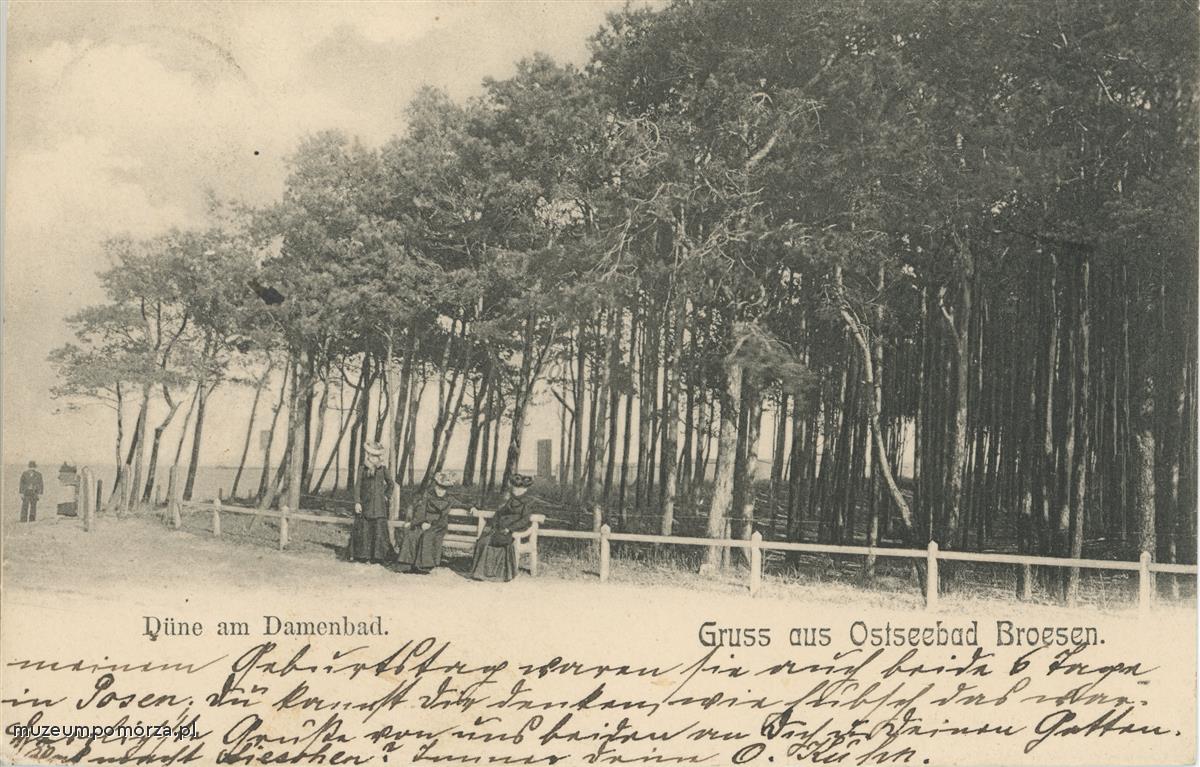 Düne am Damenbad.
Gruss aus Ostseebad Broesen.
meinem Geburtstag waren sie auch beide 6 Tage
in Posen, du kannst Dir denken, wie hübsch das war.
Herzliche Grüße von uns beiden an Dich u. Deinen Gatten.
Was macht Lieschen? Immer deine O. Kühn.
muzeumpomorza.pl